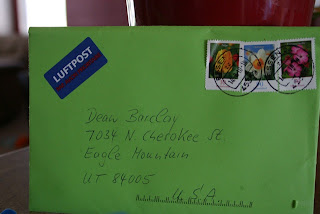 LUFTPOST
Dean Barclay
7034 N. Cherokee St.
Eagle Mountain
UT 84005
USA